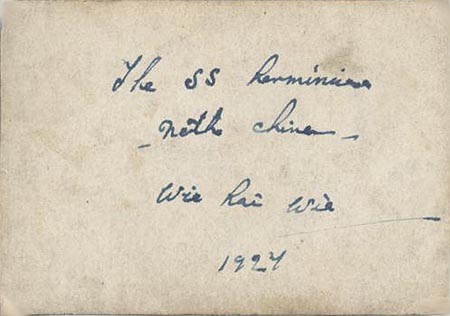 The SS herminius
- Noth china -
Wie hai Wie
1927